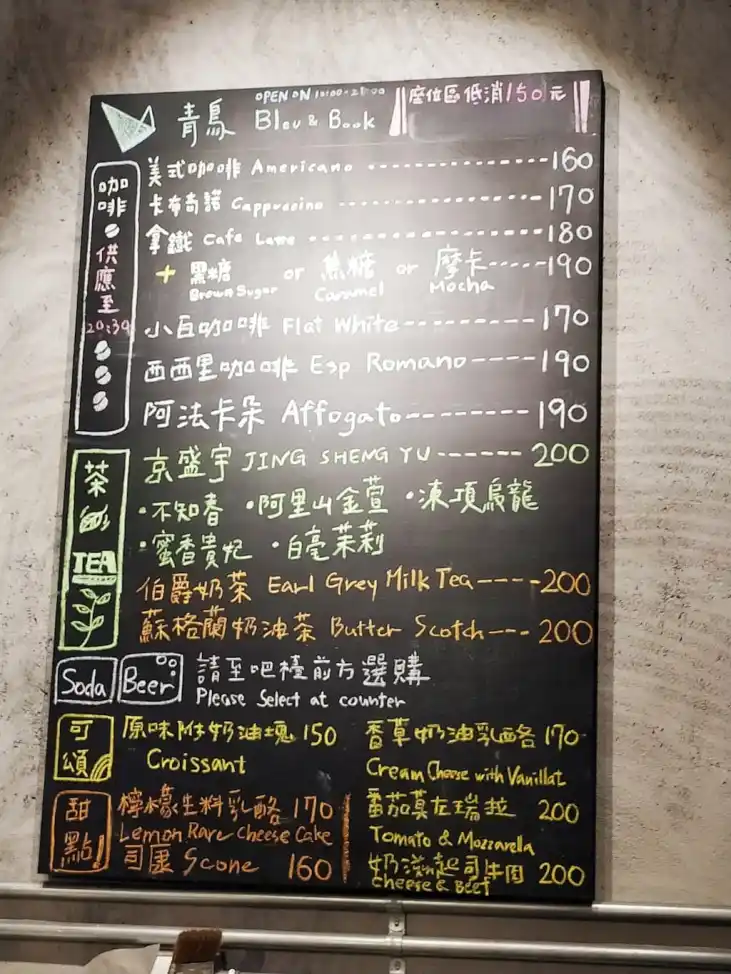 青鳥
OPEN ON 10:00~21:00
Bleu & Book
座位區低消150元
咖啡
供應至
20:30
美式咖啡 Americano ----------160
卡布奇諾 Cappuccino ----------170
拿鐵 Cafe Latte ----------180
+ 黑糖 or 焦糖 or 摩卡-----190
Brown Sugar Caramel Mocha
小白咖啡 Flat White-------170
西西里咖啡 Esp Romano----190
阿法卡朵 Affogato--------190
茶
TEA
京盛宇 JING SHENG YU------200
·不知春 ·阿里山金萱 ·凍頂烏龍
·蜜香貴妃 ·白毫茉莉
伯爵奶茶 Earl Grey Milk Tea----200
蘇格蘭奶油茶 Butter Scotch---200
Soda Beer 請至吧檯前方選購
Please Select at counter
可頌
原味附奶油塊 150
Croissant
香草奶油乳酪 170
Cream Cheese with Vanillat
番茄莫左瑞拉 200
Tomato & Mozzarella
起司牛肉 200
cheese & Beef
甜點
檸檬生料乳酪 170
Lemon Rare Cheese Cake
司康 Scone 160